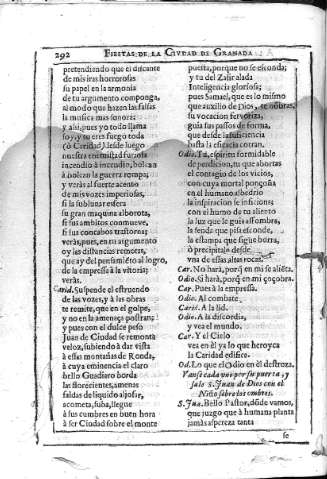 292 FIESTAS DE LA CIVDAD DE GRANADA
pretendiendo que el discante
de mis iras horrorosas
su papel en la armonia
de tu argumento componga,
al modo que hazen las falsas
la musica mas sonora:
y ahi, pues yo todo llama
soy, y tu eres fuego toda
(ò Caridad) desde luego
nuestra enemistad furiosa
incendio à incendio, bolcan
à bolcan la guerra rompa;
y veràs al fuerte acento
de mis vozes imperiosas,
si la sublunar esfera
su gran maquina alborota,
si sus ambitos conmueve,
si sus concabos trastorna;
veràs, pues, en tu argumento
oy las distancias remotas,
que ay del pensamiẽto al logro,
de la empressa à la vitoria;
veràs.
Carid. Suspende el estruendo
de las vozes, y à las obras
te remite, que en el golpe,
y no en la amenaça postrará;
y pues con el dulce peso
Juan de Ciudad se remonta
veloz, subiendo à dar vista
à essas montañas de Ronda,
à cuya eminencia el claro
bello Guadiaro borda
las florecientes, amenas
faldas de liquido aljofar,
acometa, suba, llegue
à sus cumbres en buen hora
à ser Ciudad sobre el monte
puesta, porque no se esconda;
y tu del Zafir alada
Inteligencia gloriosa;
pues Samuel, que es lo mismo
que auxilio de Dios, te nõbras,
su vocacion fervoriza,
guia sus passos de forma,
que desde la suficiencia
hasta la eficacia corran.
Odio. Tu, espiritu formidable
de perdicion, tu que abortas
el contagio de los vicios,
con cuya mortal ponçoña
en el humano albedrio
la inspiracion se inficiona;
con el humo de tu aliento
la luz que le guia assombra,
la senda que pisa esconde,
la estampa que sigue borra,
ò precipitale desde
vna de essas altas rocas.
Car. No hará, porq̃ en mi se aliẽta.
Odio. Si harà, porq̃ en mi çoçobra.
Car. Pues à la empressa.
Odio. Al combate.
Carid. A la lid.
Odio. A la discordia,
y vea el mundo.
Car. Y el Cielo
vea en èl ya lo que heroyca
la Caridad edifico.
Od. Lo que el Odio en èl destroza.
Vanse cada vno por su puerta, y
sale S. Juan de Dios con el
Niño sobre los ombros.
S. Jua. Bello Pastor, dõde vamos,
que juzgo que à humana planta
jamàs aspereza tanta
se